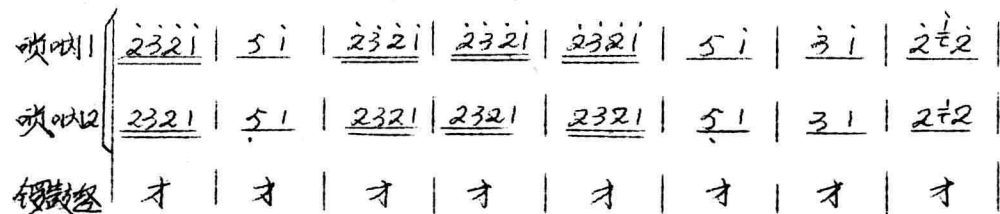 唢呐1 2̇3̇2̇1̇ | 5 1̇ | 2̇3̇2̇1̇ | 2̇3̇2̇1̇ | 2̇3̇2̇1̇ | 5 1̇ | 3̇ 1̇ | 2̇ 2̇ |
唢呐2 2321 | 5̣ 1 | 2321 | 2321 | 2321 | 5̣ 1 | 3 1 | 2 2 |
锣鼓经 | 才 | 才 | 才 | 才 | 才 | 才 | 才 | 才 |